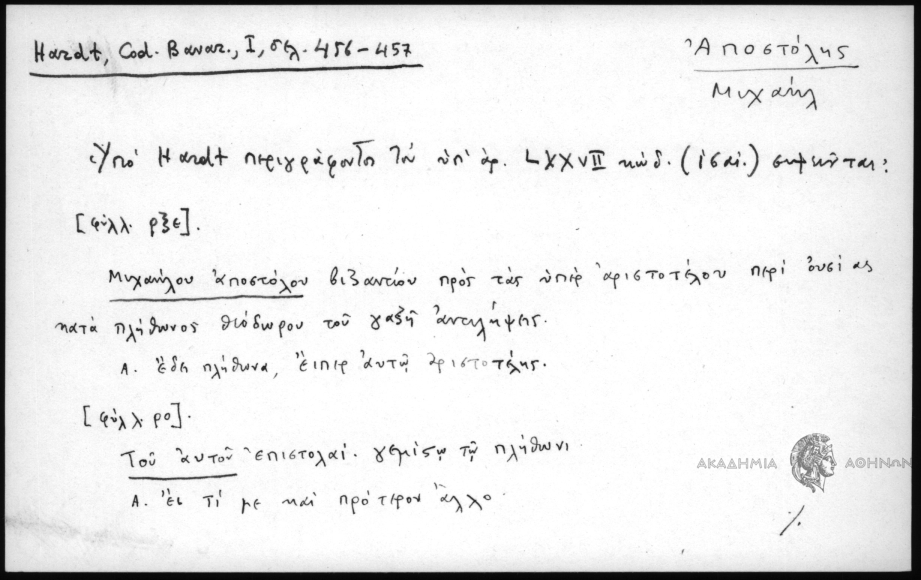 Hardt, Cod. Bavar., I, σελ. 456-457
Ἀποστόλης
Μιχαήλ
Ὑπό Hardt περιγράφοντος τόν ὑπ' ἀρ. LXXVII κώδ. (ις αἰ.) σημειοῦται:
[φύλλ. ρξε].
Μιχαήλου ἀποστόλου βιζαντίου πρὸς τὰς ὑπὲρ ἀριστοτέλου περὶ ὀυσίας
κατὰ πλήθωνος θεόδωρου τοῦ γαζῆ ἀντιλήψεις.
Α. Ἔδει πλήθωνα, Ἔιπερ ἀυτῷ ἀριστοτέλης.
[φύλλ. ρο].
Τοῦ ἀυτοῦ ἐπιστολαί. γεμίστῳ τῷ πλήθωνι
Α. Ἐι τί με καί πρότερον ἄλλο.
ΑΚΑΔΗΜΙΑ ΑΘΗΝΩΝ
./.